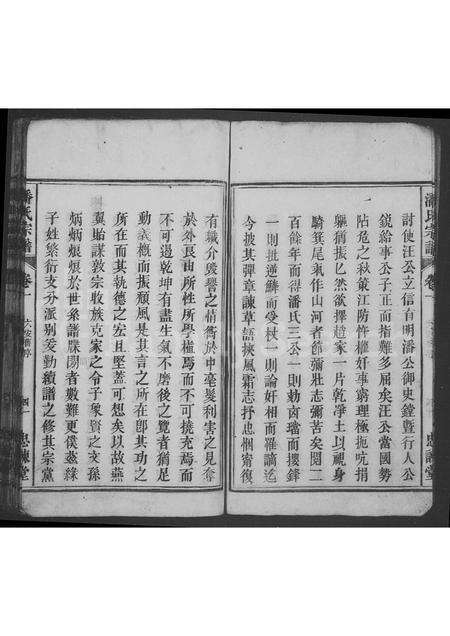 潘氏宗譜
卷一
忠諫堂
討使汪公立信有明潘公御史鏜暨行人公
鏡給事公子正而指難多屈矣汪公當國勢
阽危之秋策江防忤權奸事窮理極扼吭捐
軀猶振匕然欲擇趙家一片乾凈土以視身
騎箕尾氣作山河者節彌壯志彌苦矣閱二
百餘年而得潘氏三公一則勅鹵璫而攖鋒
一則批逆鱗而受杖一則論奸相而罹謫迄
今披其彈章諫草語挾風霜志抒忠悃甯復
有職介毀譽之情衝於中毫髮利害之見奪
於外良由所性所學植焉而不可撓充焉而
不可遏乾坤有盡生氣不磨後之覽者猶足
動義概而振頹風是其言之所在卽其功之
所在而其執德之宏且堅蓋可想矣以故燕
翼貽謀敦宗收族克家之令子象賢之文孫
炳炳烺烺於世系譜牒閒者數難更僕茲緣
子姓繁衍支分派別爰勤續譜之修其宗黨
潘氏宗譜
卷一
忠諫堂